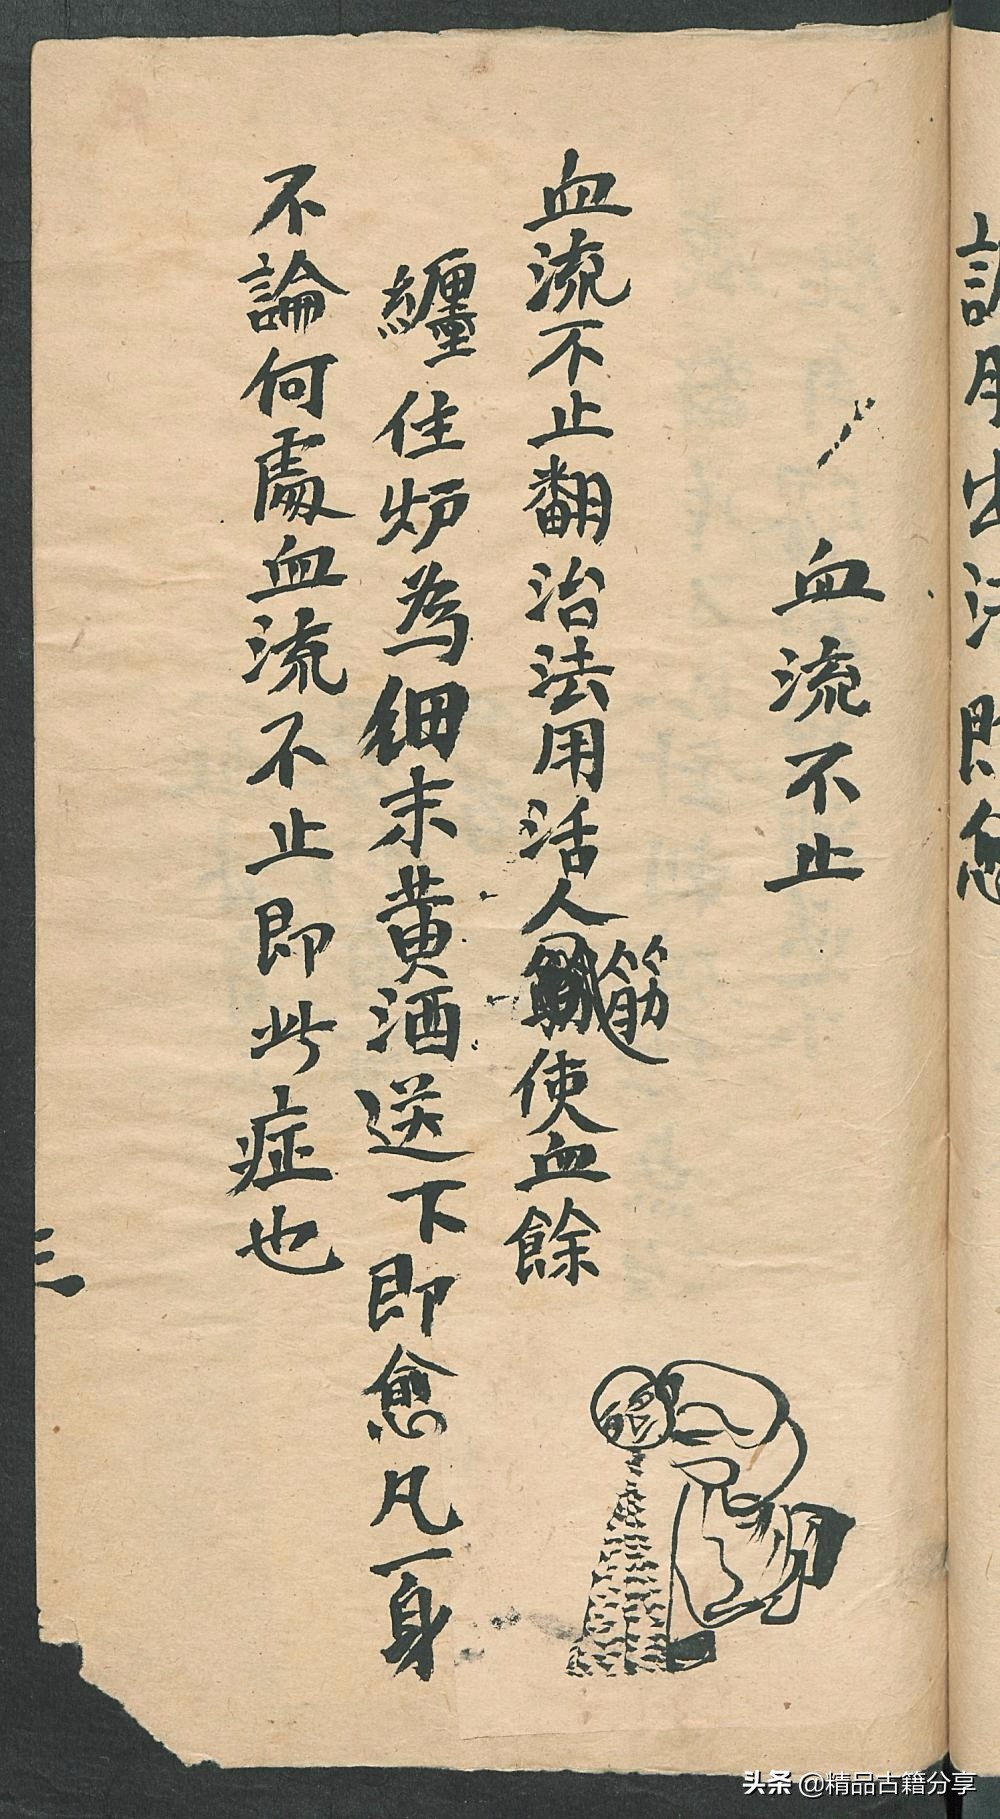 血流不止
血流不止翻治法用活人筋使血餘
纏住炉為細末黄酒送下即愈凡一身
不論何處血流不止即此症也
三
即愈
头条 @精品古籍分享